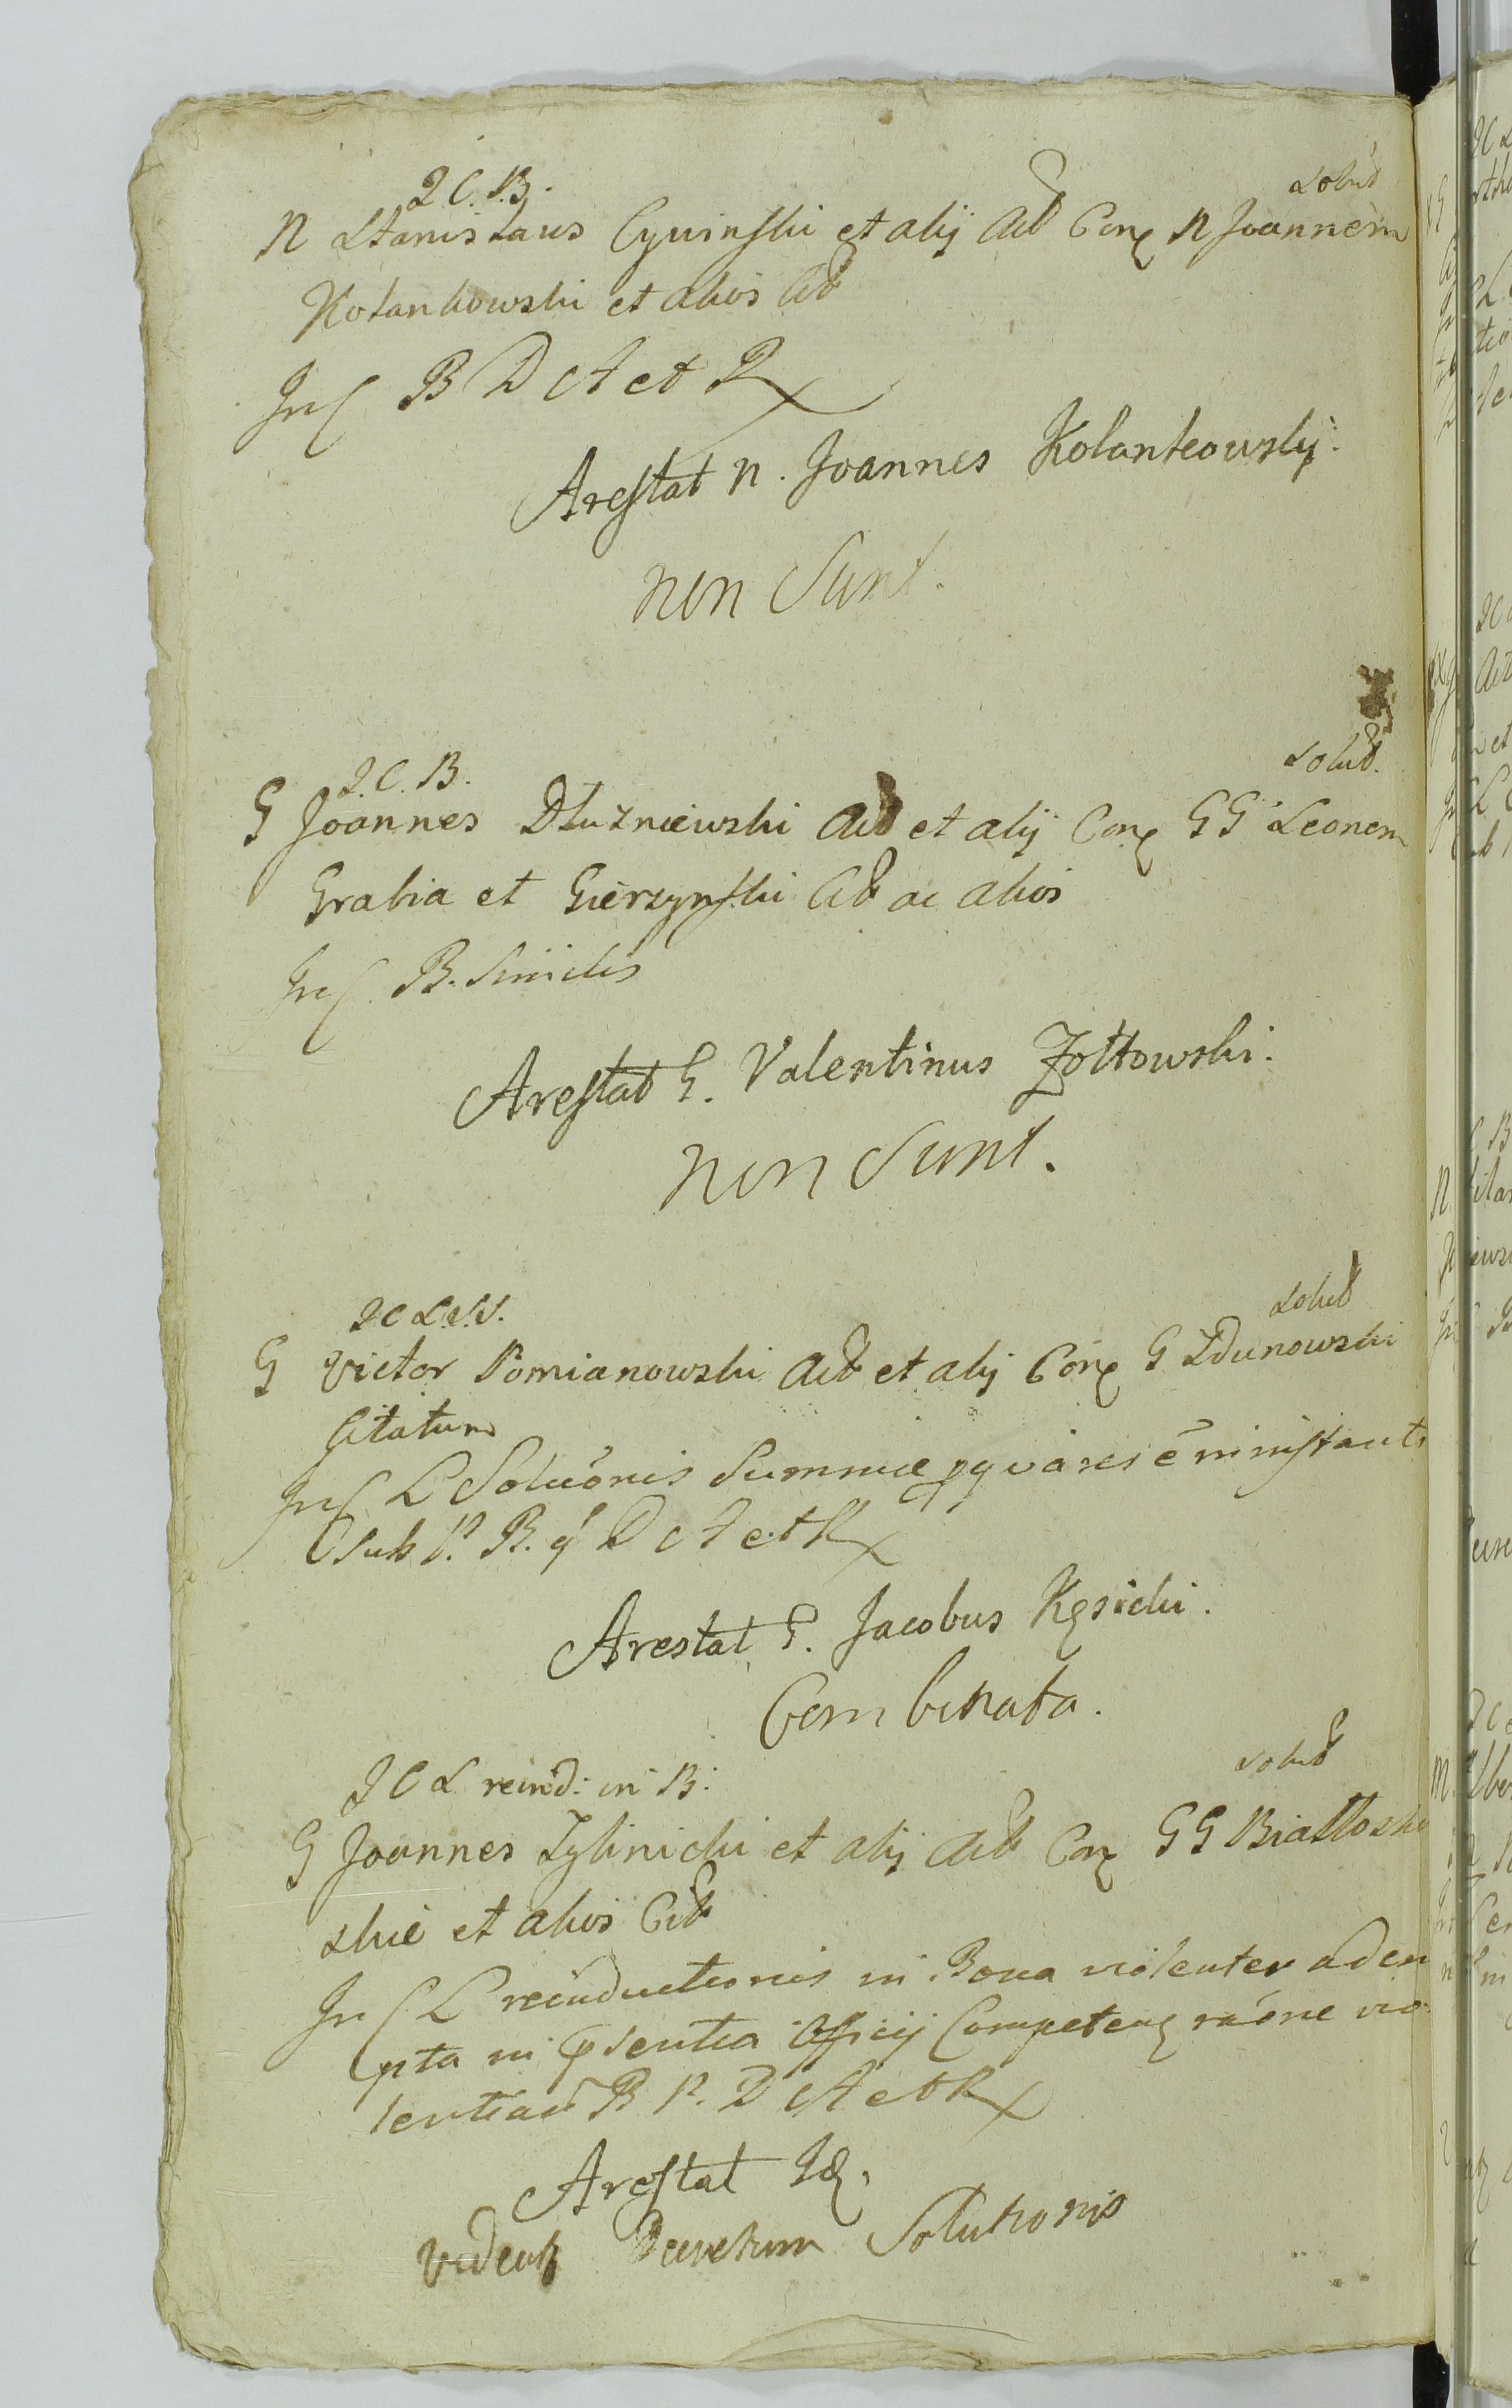 J C. B.
solut
N Stanislaus Cywinski et alij Act Conq N Joannem
Kolankowski et alios Cit
In C B D A et R
Arestat N. Joannes Kolankowsky.
non Sunt.
J. C. B.
solut.
G Joannes Dłuzniewski Act et alij Conq GG Leonem
Grabia et Gierzynski Cit ac alios
In C B. Similis
Arestat G. Valentinus Zołtowski.
non Sunt.
J C L S. S.
solut
G Victor Pomianowski Act et alij Conq G Zdunowski
Citatum
In C L Soluõnis Summæ pq va res ẽ in instanti
sub P. B. q D A et R
Arestat G. Jacobus Kęsicki.
Combinata.
J C L reind: in B:
solut
G Joannes Zylinicki et alij Act Conq GG Białłosku
skie et alios Cit
In C L reinductionis in Bona violenter adem
pta in pñsentia Officij Competenq raõne vio
lentiar B P. D A et R
Arestat Id.
Videatq Decretum Solutionis